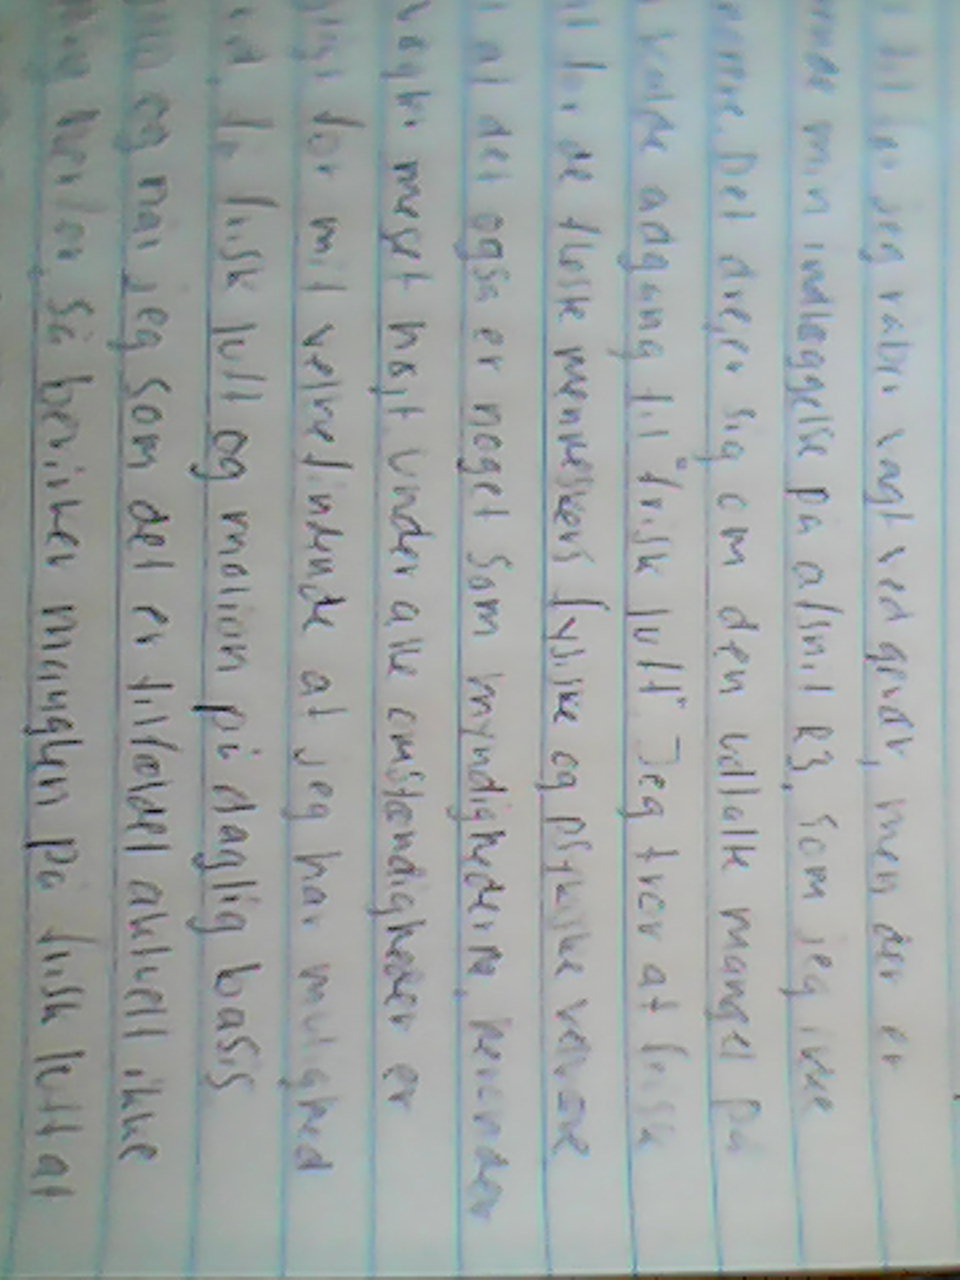 jeg råber vagt ved gevær, men der er
min indlæggelse på afsnit R3, som jeg ikke
Det drejer sig om den udtalte mangel på
adgang til "frisk luft". Jeg tror at frisk
for de fleste menneskers fysiske og psykiske velvære
at det også er noget som myndighederne, herunder
meget højt. Under alle omstændigheder er
for mit velbefindende at jeg har mulighed
frisk luft og motion på daglig basis
og når jeg som det er tilfældet aktuelt ikke
herfor, så bevirker manglen på frisk luft at